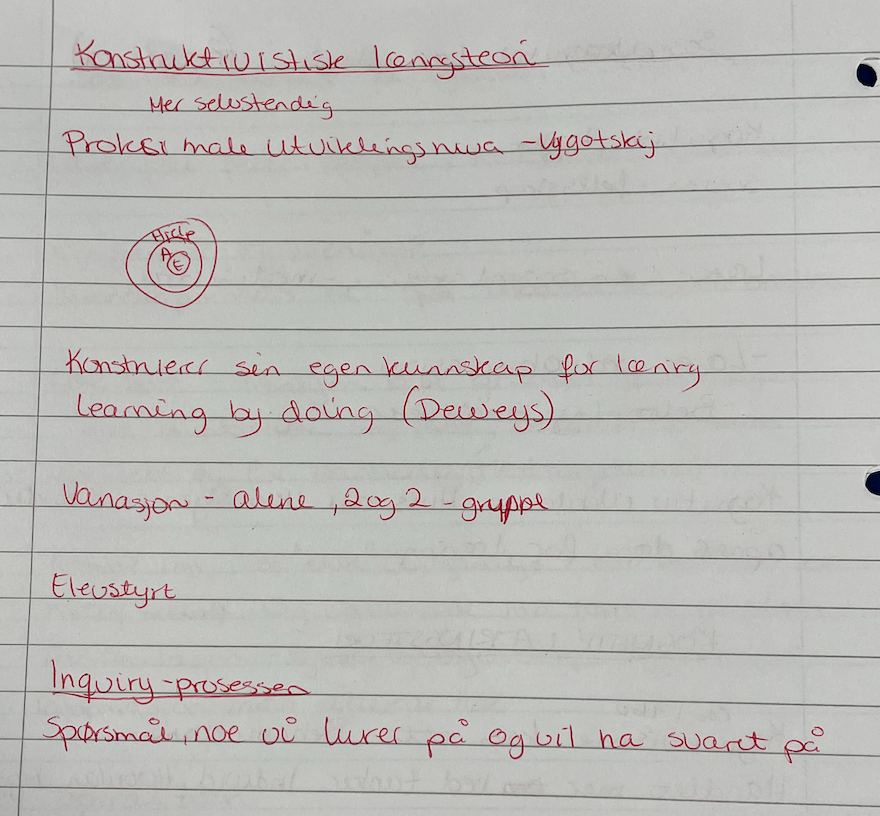 Konstruktivistiske læringsteori
Mer selvstendig
Proksimale utviklingsniva - Vygotskij
Hjelp
A
E
Konstruerer sin egen kunnskap for læring
Learning by doing (Deweys)
Variasjon - alene, 2 og 2 - gruppe
Elevstyrt
Inquiry-prosessen
Spørsmål, noe vi lurer på og vil ha svaret på